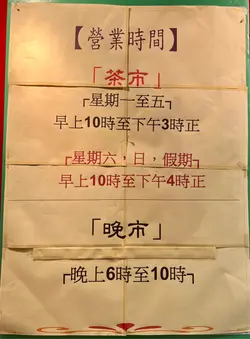 【營業時間】
「茶市」
┌星期一至五┐
早上10時至下午3時正
┌星期六，日，假期┐
早上10時至下午4時正
「晚市」
┌晚上6時至10時┐